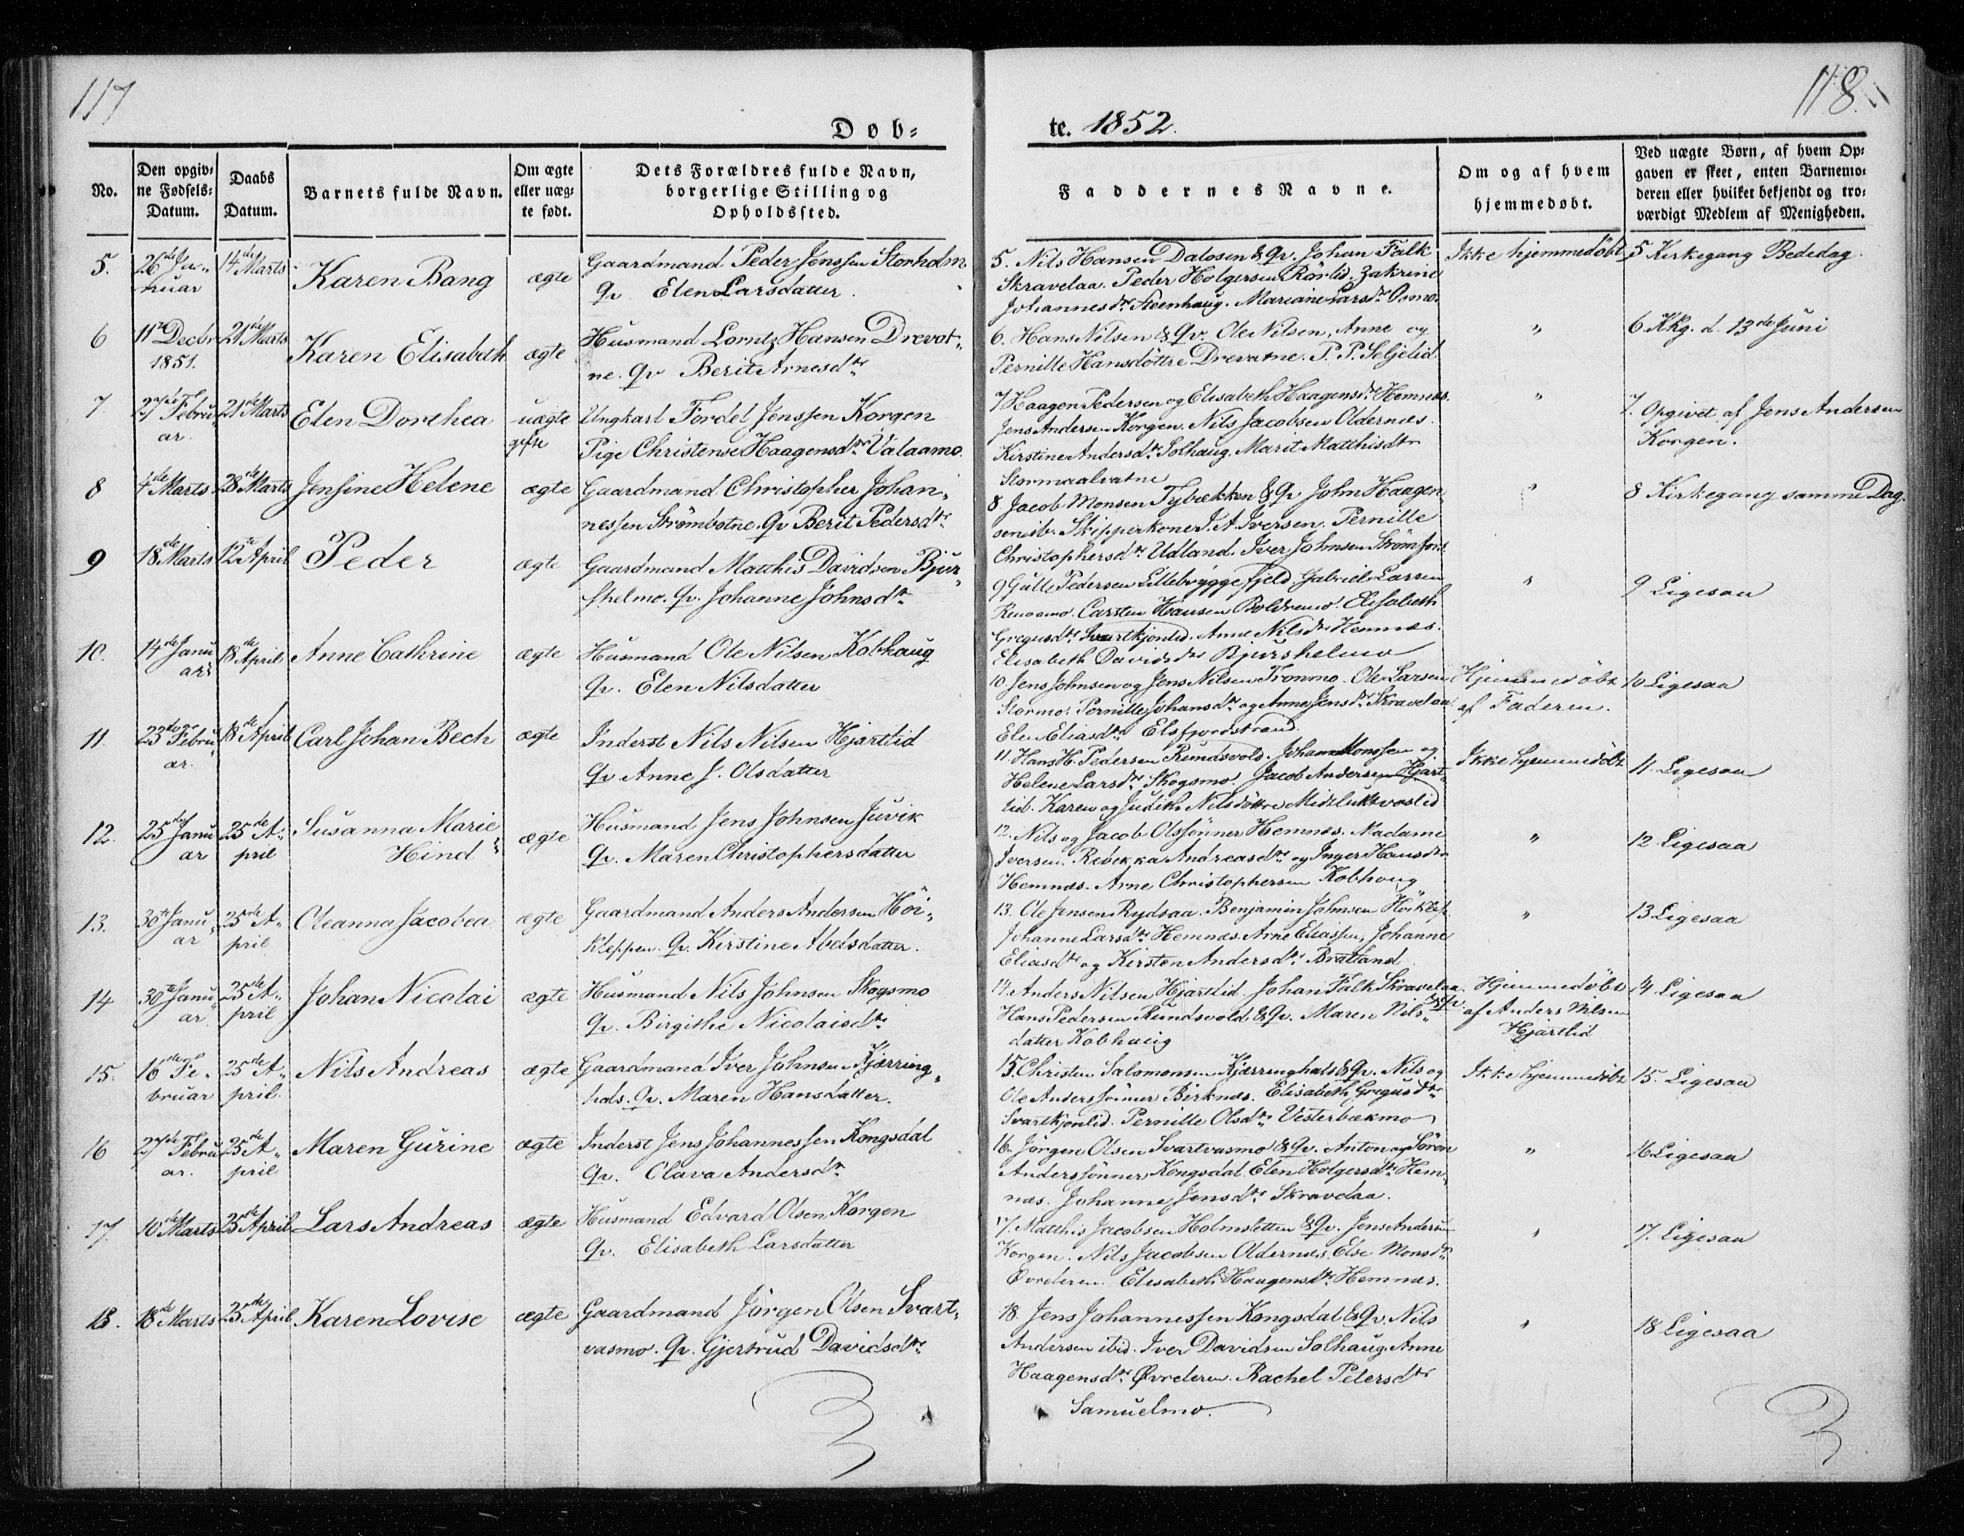 117
118.
Döb-
te. 1852.
No.
Den opgiv-
ne Fødsels-
Datum.
Daabs
Datum.
Barnets fulde Navn.
Om ægte
eller uæg-
te født.
Dets Forældres fulde Navn,
borgerlige Stilling og
Opholdssted.
Faddernes Navne.
Om og af hvem
hjemmedøbt.
Ved uægte Børn, af hvem Op-
gaven er skeet, enten Barnemo-
deren eller hvilket bekjendt og tro-
værdigt Medlem af Menigheden.
5.
26de Ja-
nuar
14de Marts
Karen Bang
ægte
Gaardmand Peder Jenssen Storholm
Qv. Elen Larsdatter.
5. Nils Hansen Dalosen & Qv. Johan Falk
Skravelaa. Peder Holgersen Rørlid. Zakrine
Johannesdr Steenhaug. Mariane Larsdr Osmo.
Ikke hjemmedöbt
5 Kirkegang Bededag.
6
11te Decbr
1851.
21de Marts
Karen Elisabeth
ægte
Husmand Lorntz Hansen Drevat-
ne. Qv Berit Arnesdtr
6. Hans Nilsen & Qv. Ole Nilsen, Anne og
Pernille Hansdöttre Drevatne. P. P. Seljelid
"
6 Kkg. d. 13de Juni
7
27de Febru-
ar.
21de Marts
Elen Dorthea
uægte
Ungkarl Fordel Jenssen Korgen
Pige Christense Haagensdtr Valaamo
7 Haagen Pedersen og Elisabeth Haagensdr Hemnes.
Jens Andersen Korgen. Nils Jacobsen Oldernes.
Kirstine Andersdtr Solhaug. Marit Matthisdtr
Stormaalvatne
"
7. Opgivet af Jens Andersen
Korgen.
8
4de Marts
28de Marts
Jensine Helene
ægte
Gaardmand Christopher Johan-
nessen Strömbotne. Qv Berit Pedersdtr
8 Jacob Monsen Tybækken & Qv John Haagen
sen ib. Skipperkone J. A. Iversen. Pernille
Christophersdtr Udland. Iver Johnsen Ström
"
8 Kirkegang samme Dag.
9
18de Marts
12te April
Peder
ægte
Gaardmand Matthis Davidsen Bjur-
shelmo. Qv. Johanne Johnsdtr
9 Gulle Pedersen Lillebryggefjeld. Gabriel Larsen
Carsten Hansen Boldremo. Elisabeth
Gregusdtr Svartkjonlid. Anne Nilsdtr Hemnes.
Elisabeth Davidsdtr Bjurshelmo
"
9 Ligesaa
10.
14de Janu
ar
18de April
Anne Cathrine
ægte
Husmand Ole Nilsen Kobhaug
Qv. Elen Nilsdatter
10. Jens Johnsen og Jens Nilsen Tronmo. Ole Larsen
Stormo. Pernille Johansdtr og Anne Jensdtr Skravelaa
Elen Eliasdtr Elsfjordstrand.
Hjemmedöbt
af Faderen.
10 Ligesaa
11.
23de Febru-
ar.
18de April
Carl Johan Bech
ægte
Inderst Nils Nilsen Hjartlid
Qv Anne J. Olsdatter
11. Hans H. Pedersen Rundsvold. Johan Monssen og
Helene Larsdtr Skogsmo. Jacob Andersen Hjart-
lid. Karen og Judith Nilsdöttre
Ikke hjemmedöbt
11. Ligesaa
12.
25de Janu
ar
25de A-
pril
Susanna Marie
Hind
ægte
Husmand Jens Johnsen Juvik
Qv. Maren Christophersdatter
12. Nils og Jacob Olssönner Hemnes. Madame
Iversen. Rebekka Andreasdtr og Inger Hansdtr
Hemnes. Arne Christophersen Kobhoug
"
12 Ligesaa
13.
30te Janu-
ar
25de A-
pril
Oleanna Jacobea
ægte
Gaardmand Anders Andersen Höi-
kleppen. Qv. Kirstine Abelsdatter.
13. Ole Jensen Rydsaa. Benjamin Johnsen Höiklep.
Johanne Larsdtr Hemnes. Arne Eliassen, Johanne
Eliasdtr og Kirsten Andersdtr Bratland
"
13 Ligesaa
14
30te Janu-
ar.
25de A-
pril
Johan Nicolai
ægte
Husmand Nils Johnsen Skogsmo
Qv. Birgithe Nicolaisdtr
14. Anders Nilsen Hjartlid. Johan Falk Skravelaa.
Hans Pedersen Rundsvold & Qv. Maren Nils-
datter Kobhaug
Hjemmedöbt
af Anders Nilsen
Hjartlid
14. Ligesaa
15.
16de Fe-
bruar
25de A-
pril.
Nils Andreas
ægte
Gaardmand Iver Johnsen Kjærring-
hals. Qv. Maren Hansdatter.
15 Christen Salomonsen Kjærringhals & Qv. Nils og
Ole Anderssönner Birknes. Elisabeth Gregusdtr
Svartkjonlid. Pernille Olsdtr Vesterbækmo
Ikke hjemmedöbt
15. Ligesaa
16
27de Febru
ar.
25de A-
pril
Maren Gurine
ægte
Inderst Jens Johannessen Kongsdal
Qv. Olava Andersdtr
16. Jörgen Olsen Svartvasmo & Qv. Anton og Sören
Anderssönner Kongsdal. Elen Holgersdtr Hem-
nes. Johanne Jensdtr Skravelaa.
"
16 Ligesaa
17.
10de Marts
25de April
Lars Andreas
ægte
Husmand Edvard Olsen Korgen
Qv. Elisabeth Larsdatter
17 Matthis Jacobsen Holmsletten & Qv. Jens Andersen
Korgen. Nils Jacobsen Oldernes. Else Monsdtr
Øvrederen. Elisabeth Haagensdtr Hemnes.
"
17. Ligesaa
18.
18de Marts
25de April
Karen Lovise
ægte
Gaardmand Jörgen Olsen Svart-
vasmo. Qv. Gjertrud Davidsdtr
18. Jens Johannessen Kongsdal & Qv. Nils
Andersen ibid. Iver Davidsen Solhaug. Anne
Haagensdtr Øvrederen. Rachel Petersdtr
Samuelmo.
"
18 Ligesaa